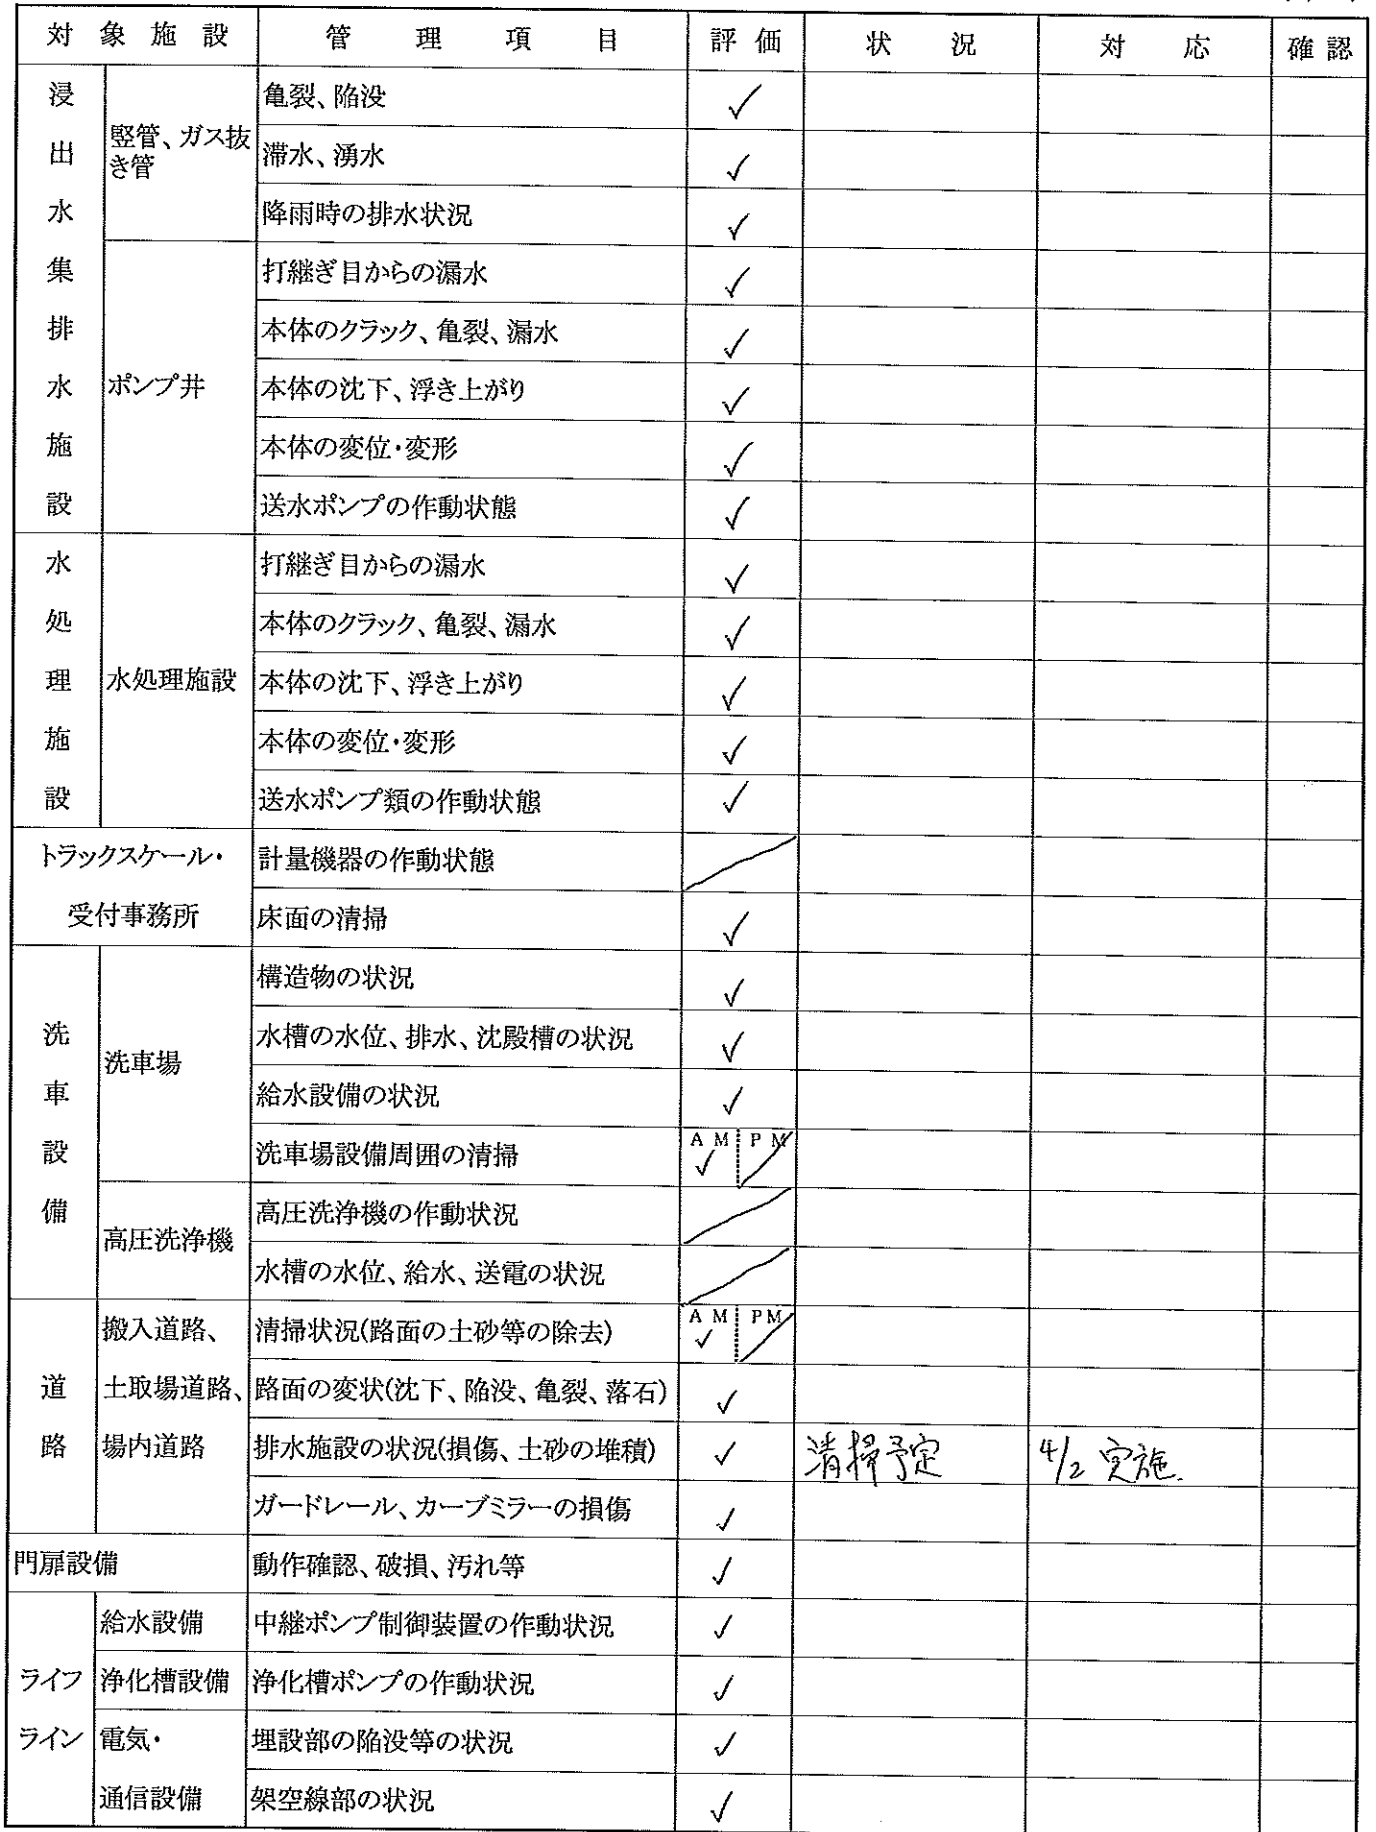 対象施設 管理項目 評価 状況 対応 確認
浸出水集排水施設 竪管、ガス抜き管 亀裂、陥没 ✓
滞水、湧水 ✓
降雨時の排水状況 ✓
ポンプ井 打継ぎ目からの漏水 ✓
本体のクラック、亀裂、漏水 ✓
本体の沈下、浮き上がり ✓
本体の変位・変形 ✓
送水ポンプの作動状態 ✓
水処理施設 水処理施設 打継ぎ目からの漏水 ✓
本体のクラック、亀裂、漏水 ✓
本体の沈下、浮き上がり ✓
本体の変位・変形 ✓
送水ポンプ類の作動状態 ✓
トラックスケール・受付事務所 計量機器の作動状態 ／
床面の清掃 ✓
洗車設備 洗車場 構造物の状況 ✓
水槽の水位、排水、沈殿槽の状況 ✓
給水設備の状況 ✓
洗車場設備周囲の清掃 AM ✓ PM ／
高圧洗浄機 高圧洗浄機の作動状況 ／
水槽の水位、給水、送電の状況 ／
道路 搬入道路、土取場道路、場内道路 清掃状況(路面の土砂等の除去) AM ✓ PM ／
路面の変状(沈下、陥没、亀裂、落石) ✓
排水施設の状況(損傷、土砂の堆積) ✓ 清掃予定 4/2 実施.
ガードレール、カーブミラーの損傷 ✓
門扉設備 動作確認、破損、汚れ等 ✓
ライフライン 給水設備 中継ポンプ制御装置の作動状況 ✓
浄化槽設備 浄化槽ポンプの作動状況 ✓
電気・通信設備 埋設部の陥没等の状況 ✓
架空線部の状況 ✓